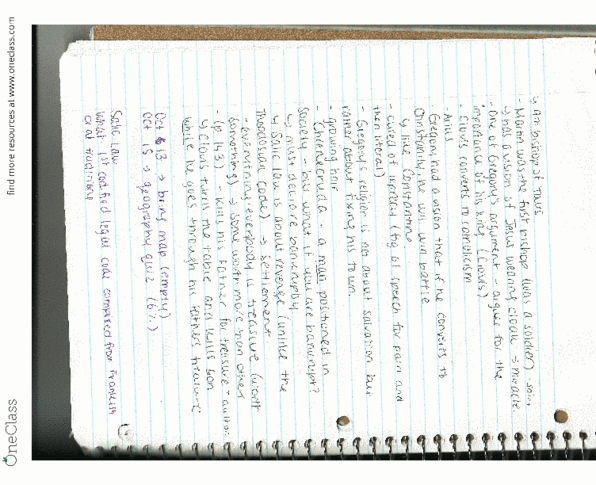 find more resources at www.oneclass.com
↳ Az bishop of Tours
- Martin was the first bishop (was a soldier)
↳ has a vision of Jesus wearing cloak → miracle
- One of Gregory's argument - argues for the
importance of his king (Clovis)
- Clovis converts to catholicism
- Arius
Gregory had a vision that if he converts to
Christianity he will win battle
↳ like Constantine
- cured of leprosy (fig of speech for pain and
then literal)
- Gregory's religion is not about salvation but
rather about fixing his town
- growing hair
- Chrenecruda - a man positioned in
society - but what if you are bankrupt?
↳ must declare bankruptcy
↳ Salic law is about revenge (unlike the
Theodosian code) → settlement
- everything/everybody is treasure (worth
something) → some worth more than other
- (p 143) - kills his father for treasure -
↳ Clovis turns the table and kills son
while he goes through his fathers treasure
Oct 13 → bring map (empty)
Oct 15 → geography quiz (6%)
Salic Law
What 1st codified legal code compared from Frankish
oral traditions
OneClass